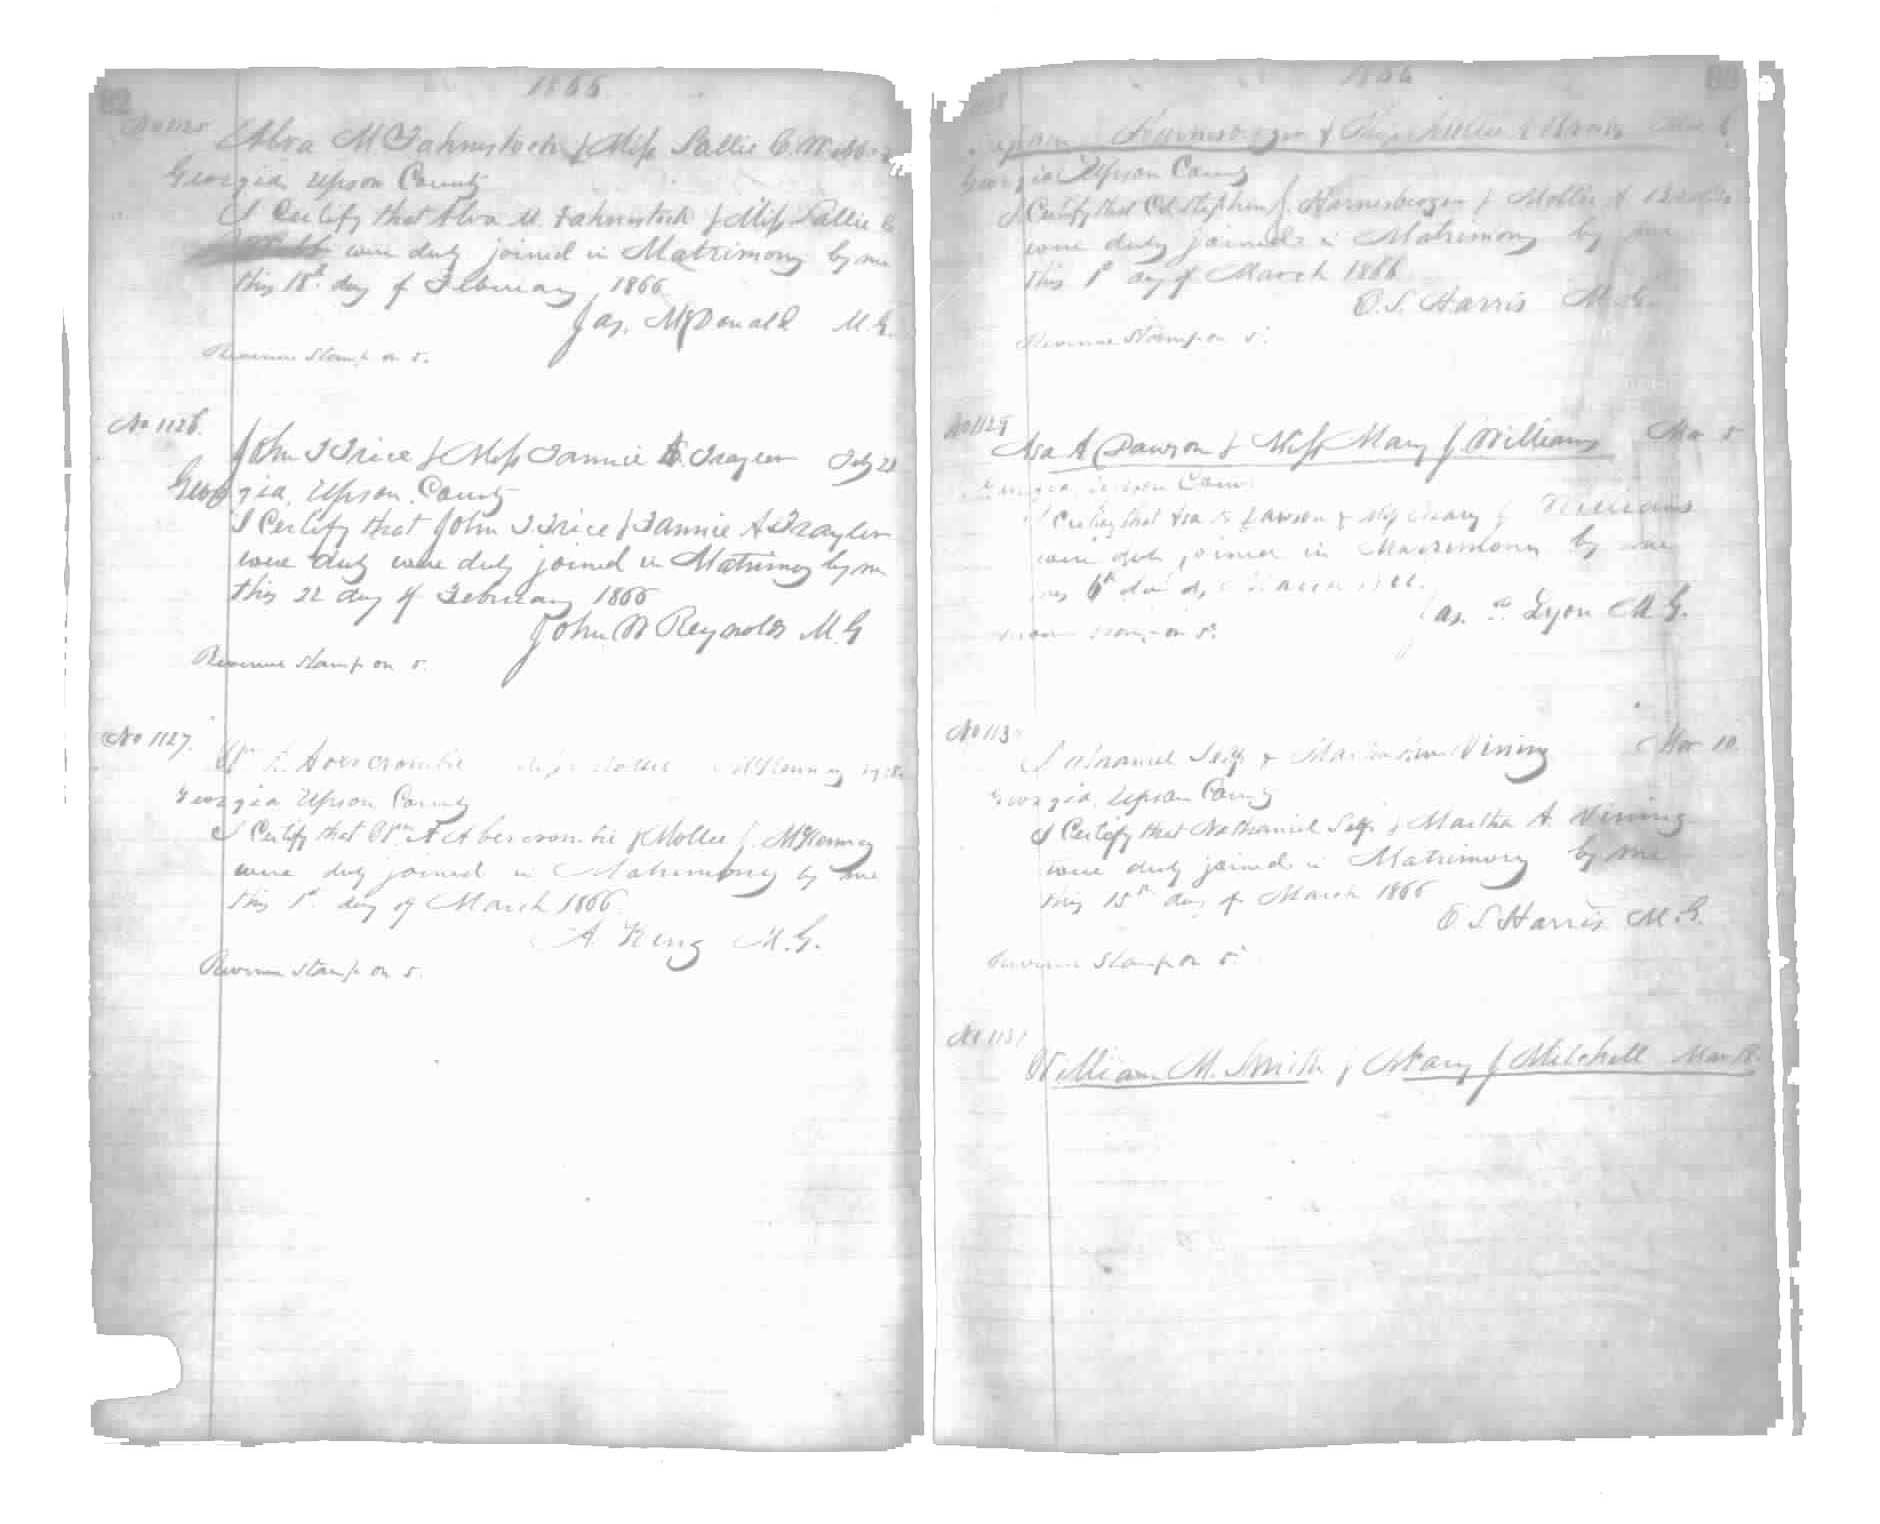 1866
No 1125
Alva M Fahnestock & Miss Sallie C. Webb
Georgia Upson County
I Certify that Alva M. Fahnestock & Miss Sallie C
Webb were duly joined in Matrimony by me
this 18th day of February 1866
Jas. McDonald M.G.
Revenue Stamp on 5.
No 1126.
John T Trice & Miss Fannie A. Traylor Feby 21
Georgia, Upson County
I Certify that John T Trice & Fannie A Traylor
were duly were duly joined in Matrimoy by me
this 22 day of February 1866
John W Reynolds M.G
Revenue Stamp on 5.
No 1127.
Wm Abercrombie Miss Mollie McKenney
Georgia Upson County
I Certify that Wm A Abercrombie & Mollie J. McKenney
were duly joined in Matrimony by me
this 1st day of March 1866.
A King M.G.
Revenue Stamp on 5.
1866
Harnesberger & Miss Mollie
Georgia Upson County
I Certify that Col Stephen J. Harnesberger & Mollie A
were duly joined in Matrimony by me
this 1st day of March 1866
C. S. Harris M.G.
Revenue Stamp on 5.
No 1129
Asa A Dawson & Miss Mary J Williams Mar 5
Georgia Upson County
I Certify that Asa A Dawson & Miss Mary J Williams
were duly joined in Matrimony by me
this 6th day of March 1866.
Jas. Lyon M.G.
Revenue Stamp on 5.
No 113
Nathaniel Self & Martha Ann Vining Mar 10
Georgia, Upson County
I Certify that Nathaniel Self & Martha A. Vining
were duly joined in Matrimony by me
this 15th day of March 1866
C S Harris M.G.
Revenue Stamp on 5.
No 1131
William M. Smith & Mary J Mitchell Mar 18